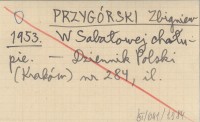 O PRZYGÓRSKI Zbigniew
1953. W Sabałowej chału-
pie. — Dziennik Polski
(Kraków) nr 284, il.